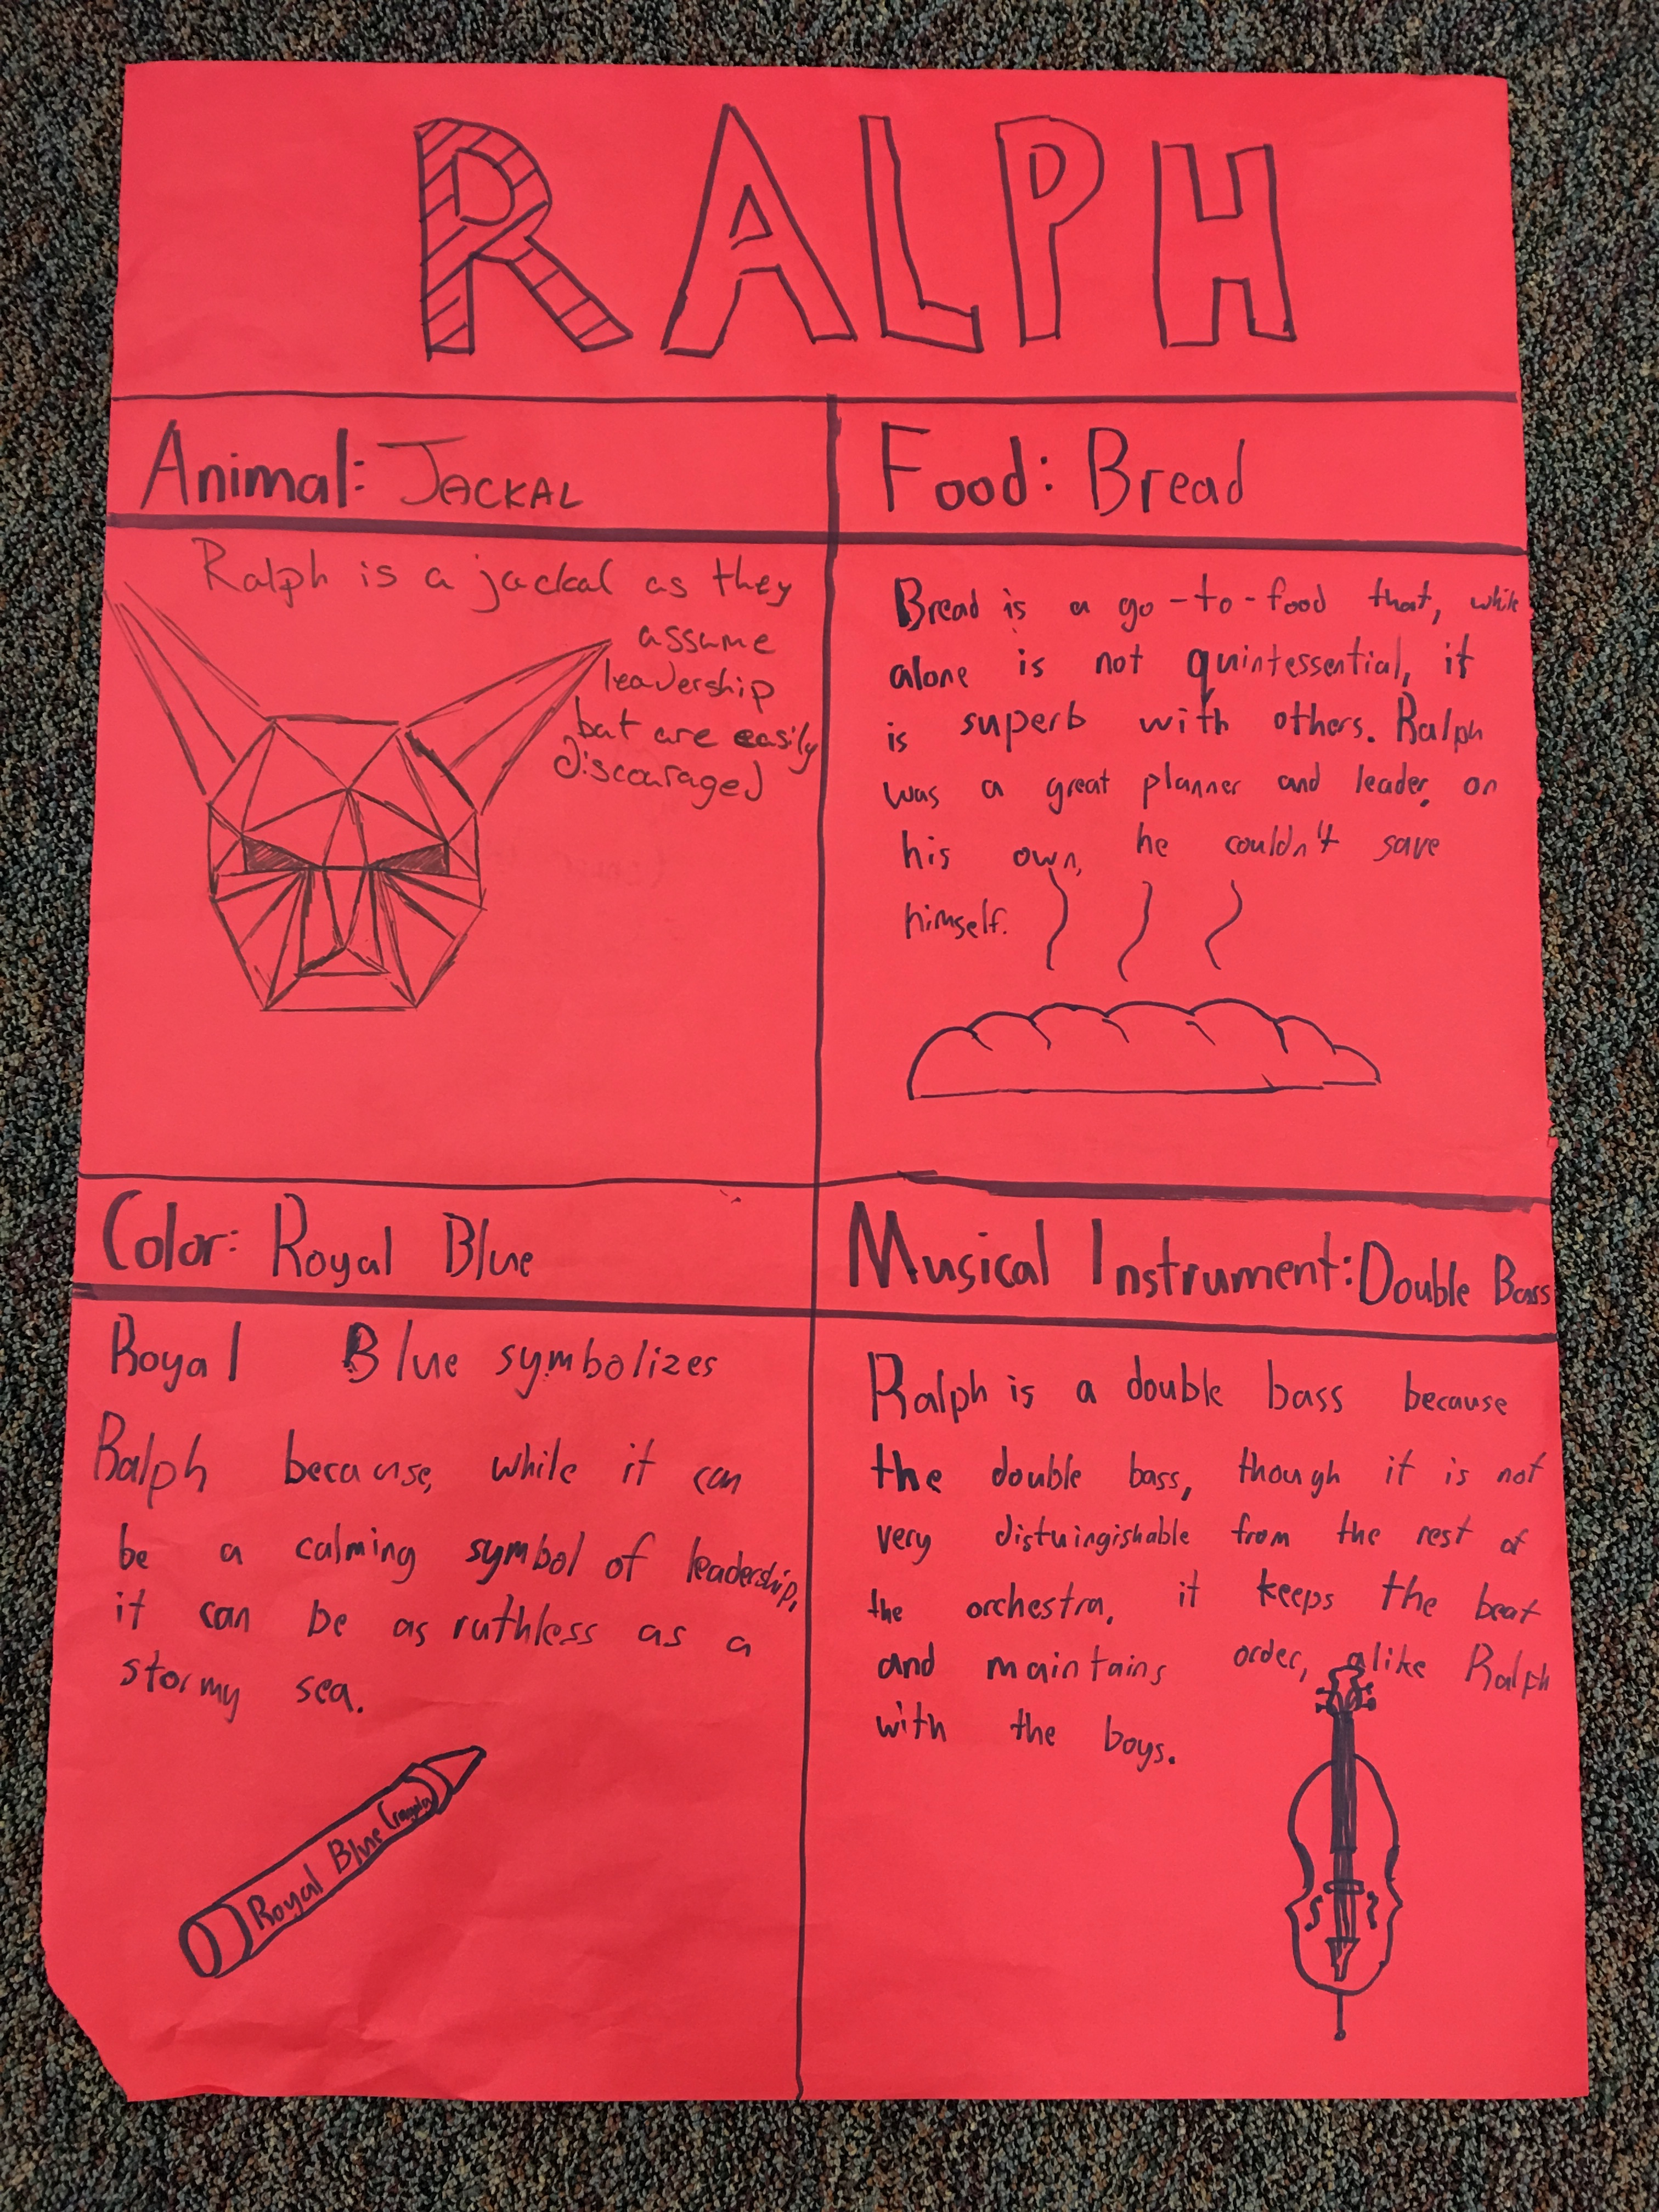 RALPH
Animal: JACKAL
Ralph is a jackal as they
assume
leadership
but are easily
discouraged
Food: Bread
Bread is a go-to-food that, while
alone is not quintessential, it
is superb with others. Ralph
was a great planner and leader, on
his own, he couldn't save
himself.
Color: Royal Blue
Royal Blue symbolizes
Ralph because, while it can
be a calming symbol of leadership,
it can be as ruthless as a
stormy sea.
Royal Blue Crayola
Musical Instrument: Double Bass
Ralph is a double bass because
the double bass, though it is not
very distuingishable from the rest of
the orchestra, it keeps the beat
and maintains order, alike Ralph
with the boys.